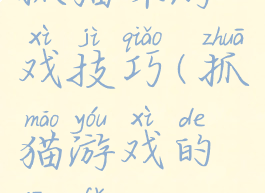 xì jì qiǎo zhuā
戏技巧(抓
māo yóu xì de
猫游戏的